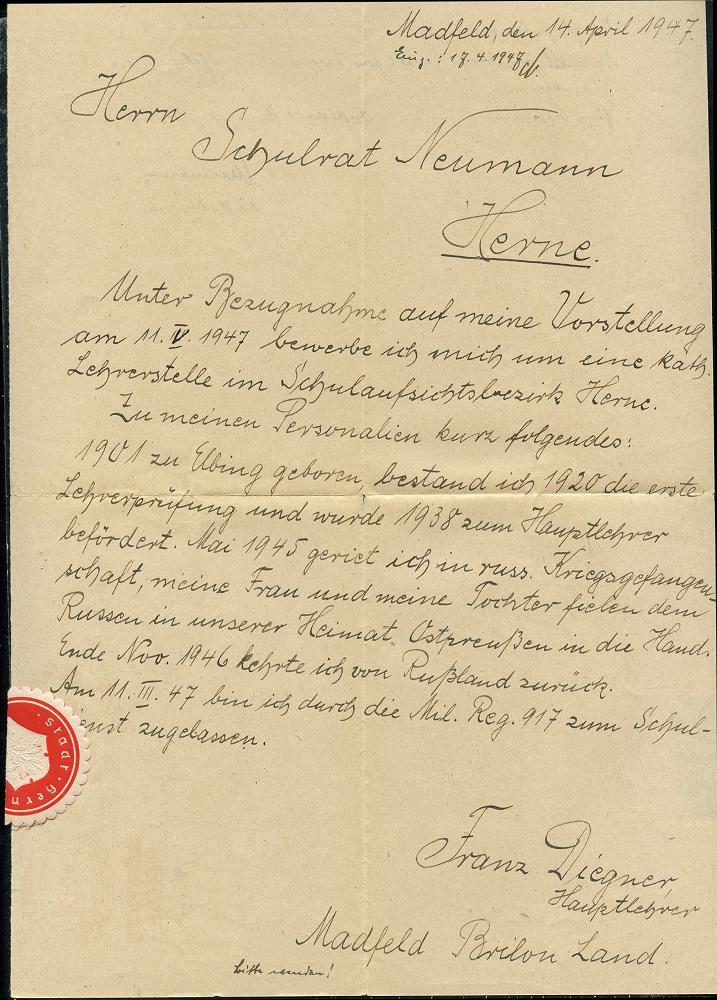 Madfeld, den 14. April 1947.
Eing.: 17.4.1947
Herrn
Schulrat Neumann
Herne.
Unter Bezugnahme auf meine Vorstellung
am 11. IV. 1947 bewerbe ich mich um eine kath.
Lehrerstelle im Schulaufsichtsbezirk Herne.
Zu meinen Personalien kurz folgendes:
1901 zu Elbing geboren, bestand ich 1920 die erste
Lehrerprüfung und wurde 1938 zum Hauptlehrer
befördert. Mai 1945 geriet ich in russ. Kriegsgefangen-
schaft, meine Frau und meine Tochter fielen dem
Russen in unserer Heimat Ostpreußen in die Hand.
Ende Nov. 1946 kehrte ich von Rußland zurück.
Am 11. III. 47 bin ich durch die Mil. Reg. 917 zum Schul-
ienst zugelassen.
Stadt Hern
Franz Diegner,
Hauptlehrer
Madfeld Brilon Land.
bitte wenden!